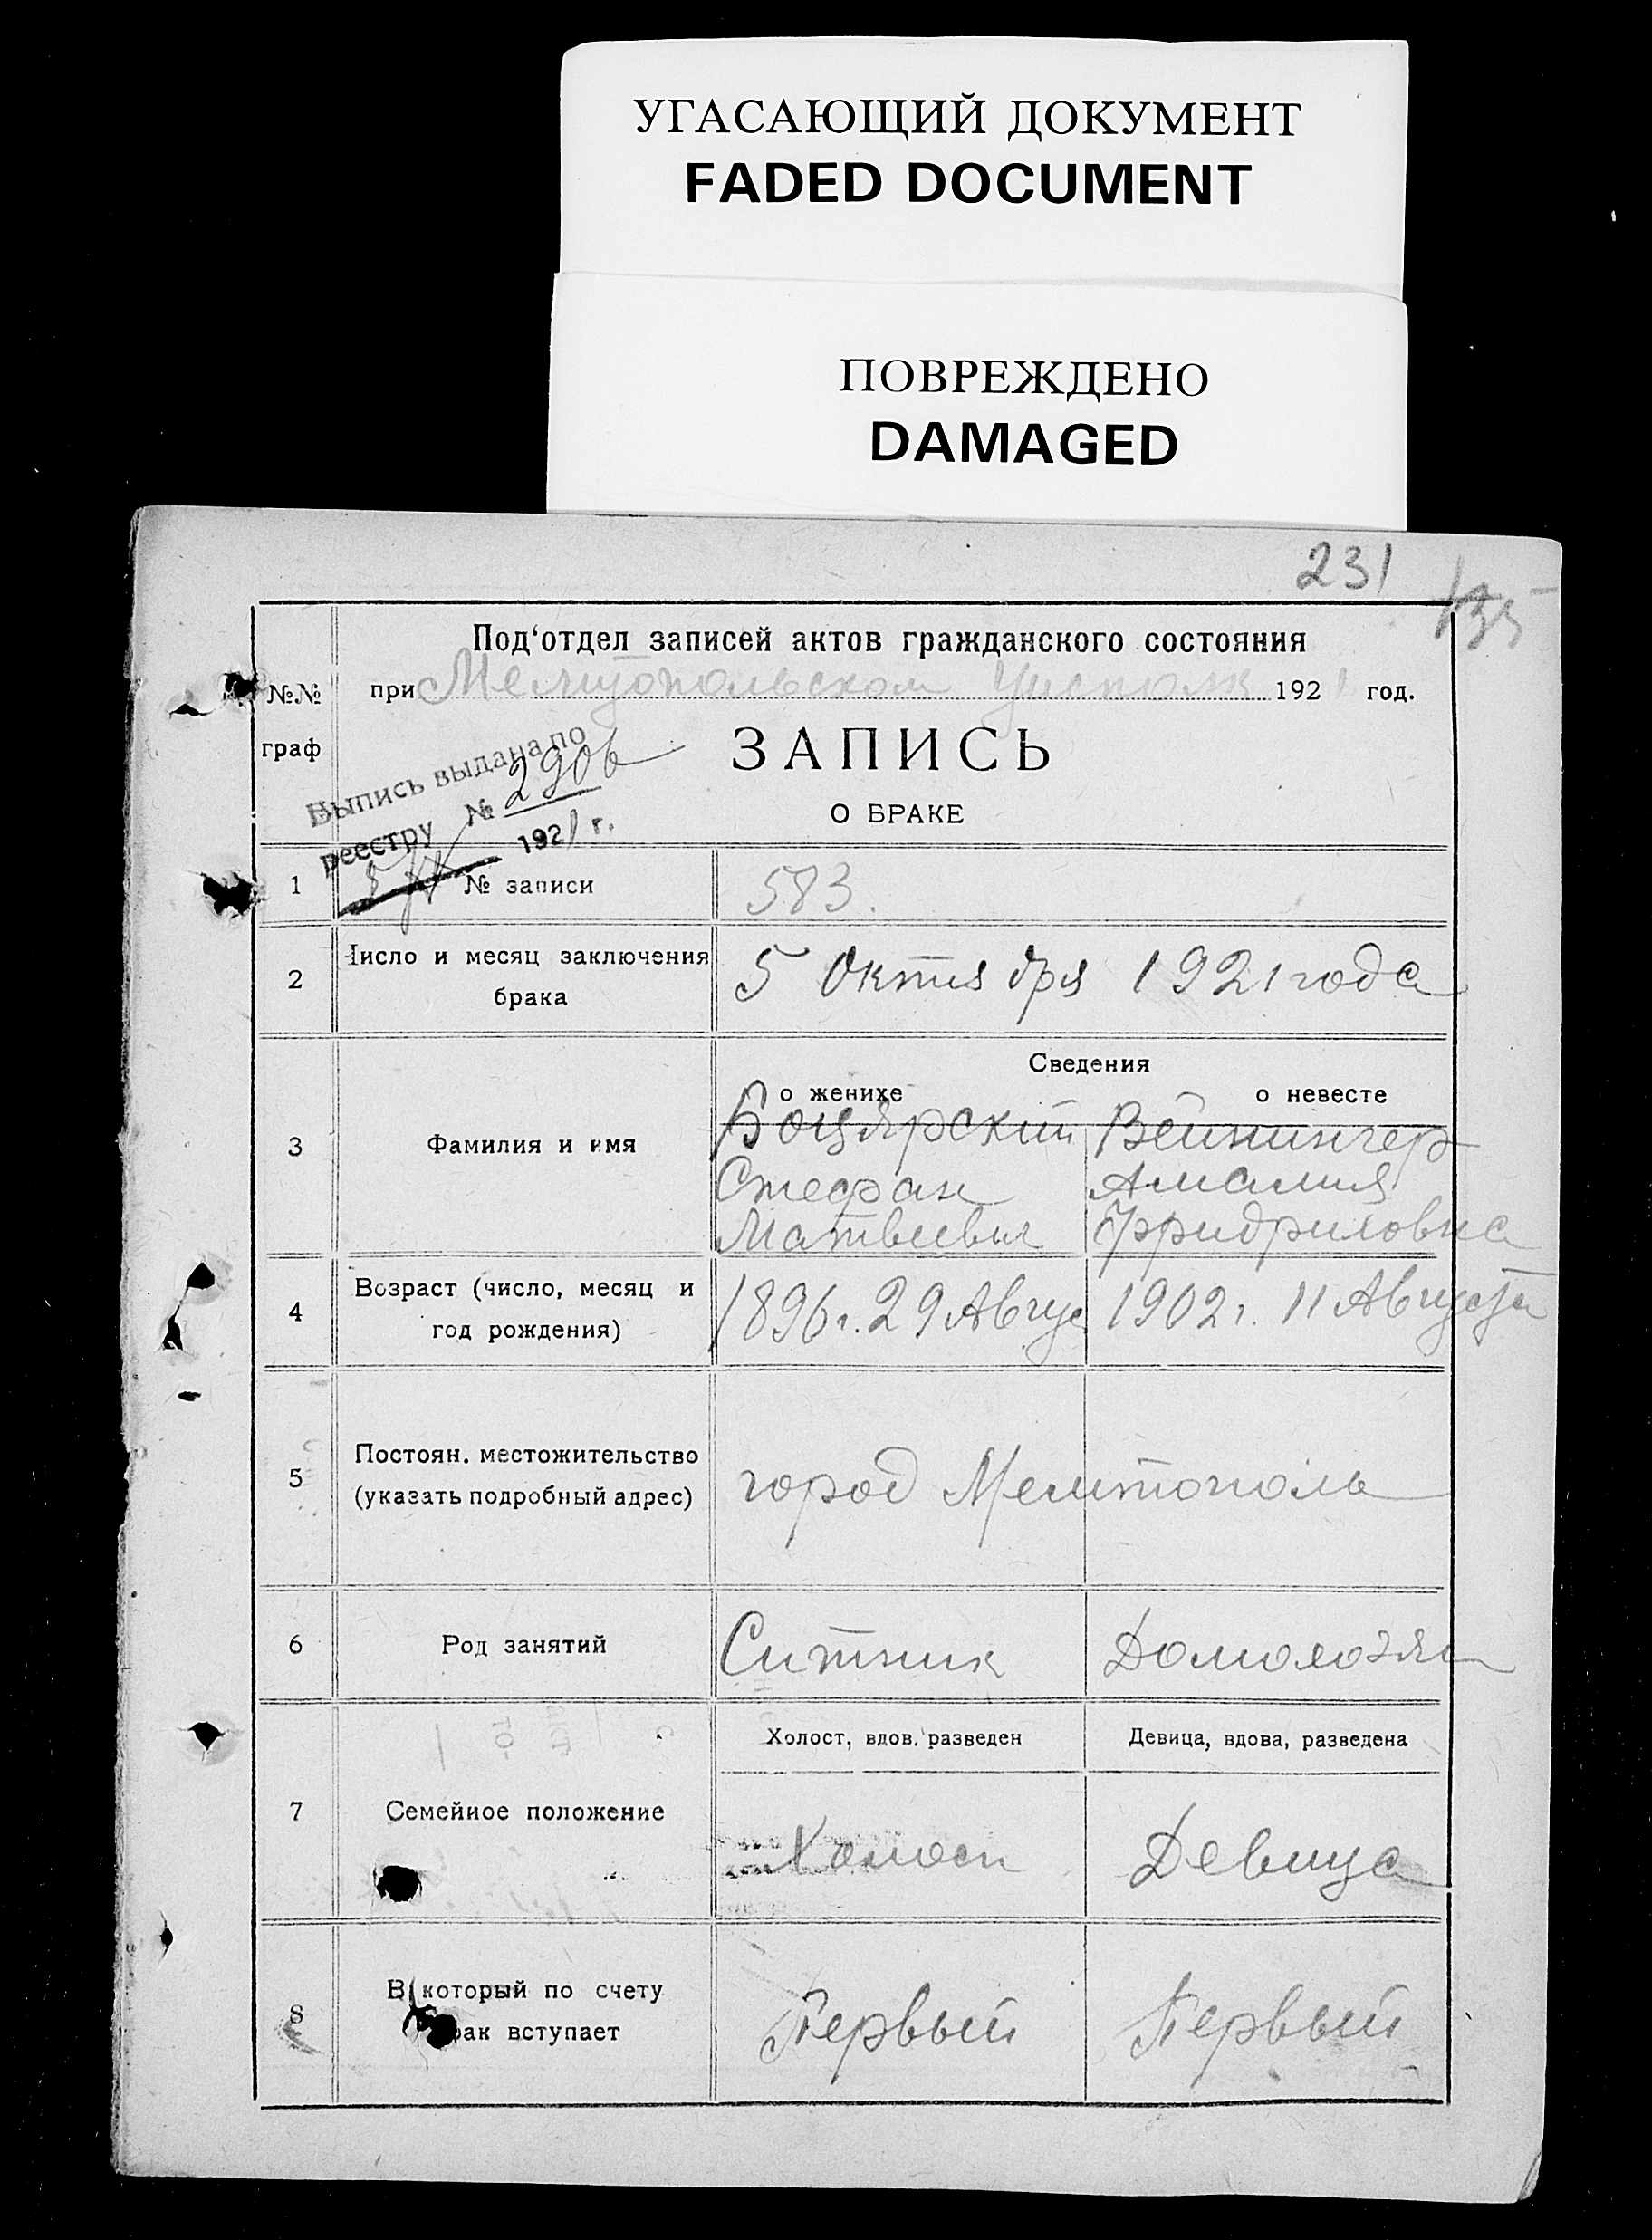 УГАСАЮЩИЙ ДОКУМЕНТ
FADED DOCUMENT
ПОВРЕЖДЕНО
DAMAGED
231
135
Под‘отдел записей актов гражданского состояния
№№ при Мелитопольском Уисполк 1921 год.
граф
Выпись выдана по
реестру № 2906
1921 г.
ЗАПИСЬ
О БРАКЕ
1 № записи 583.
2 Число и месяц заключения брака 5 Октября 1921 года
Сведения
о женихе о невесте
3 Фамилия и имя Боцярский Вейнингер
Стефан Амалия
Матвеевич Фридриховна
4 Возраст (число, месяц и год рождения) 1896 г. 29 Авгус 1902 г. 11 Августа
5 Постоян. местожительство
(указать подробный адрес) город Мелитополь
6 Род занятий Ситник Домохозяй
Холост, вдов. разведен Девица, вдова, разведена
7 Семейное положение Холост Девица
8 В который по счету
брак вступает Первый Первый